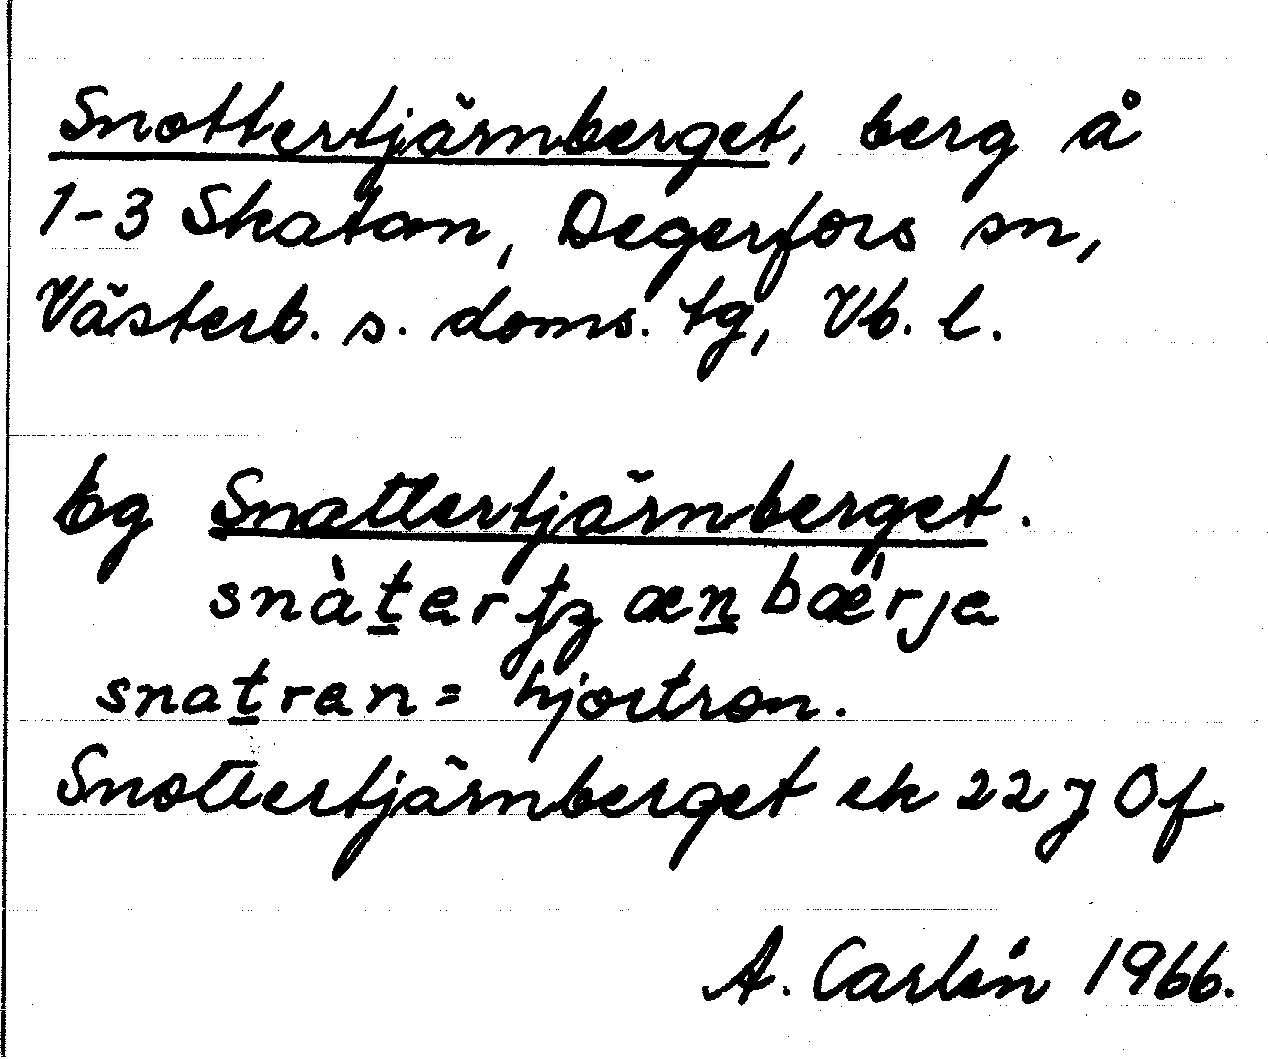 Snottertjärnberget, berg å
1-3 Skatan, Degerfors sn,
Västerb. s. doms. tg, Vb. l.
bg Snattertjärnberget.
snàt̲er æn̲bǽrje
snat̲ren = hjortron.
Snottertjärnberget ek 22 J Of
A. Carlén 1966.